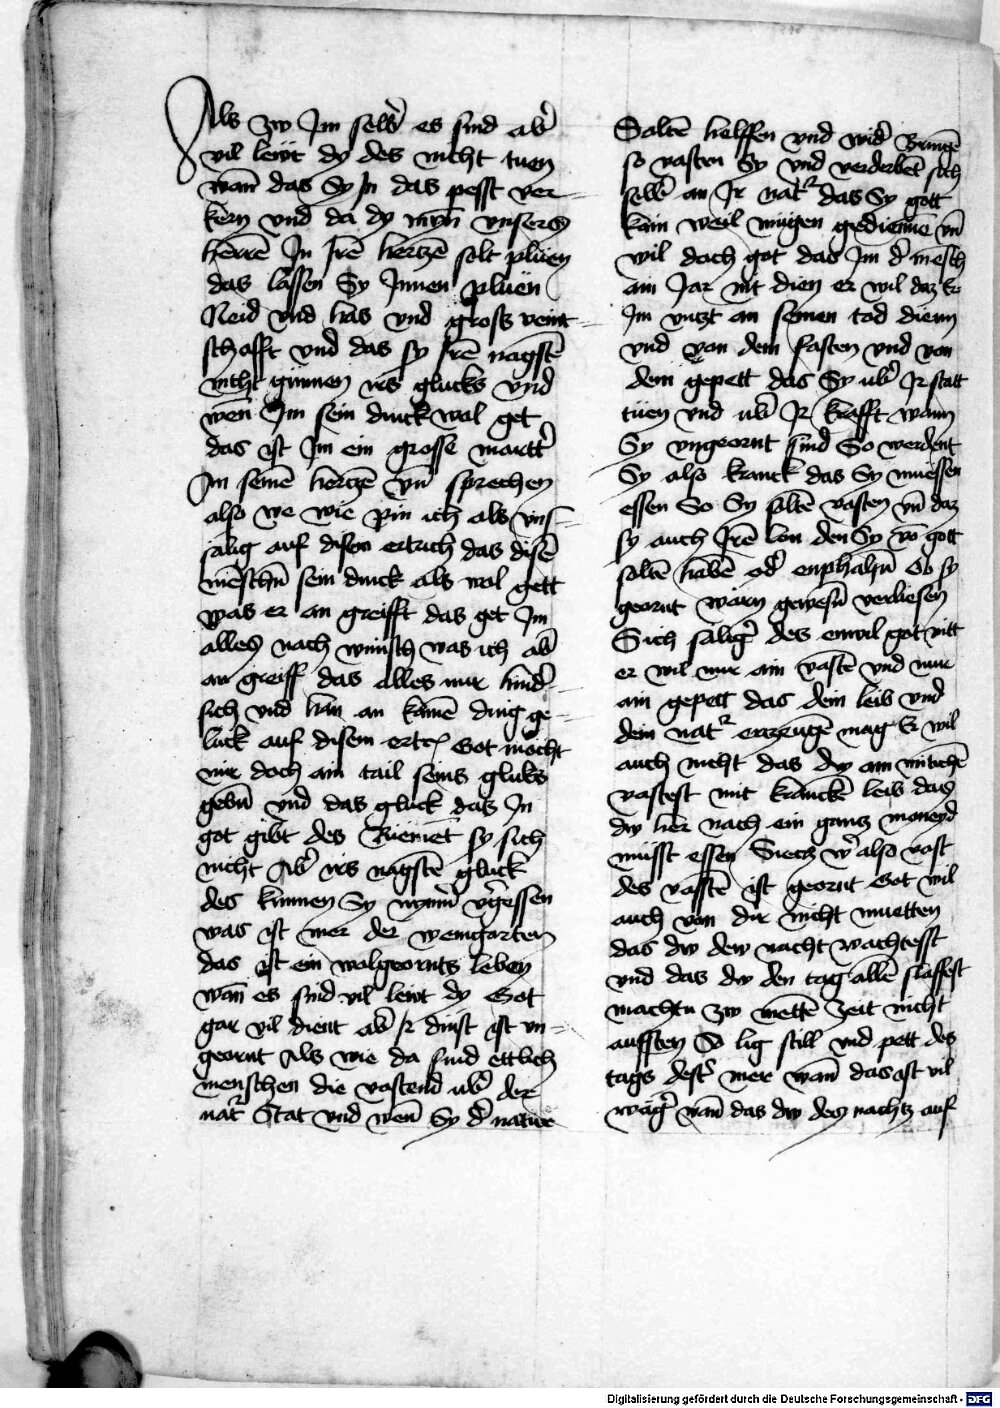 Als zw Im selbs es sind abˀ
vil lewt dy des nicht tuen
wan̄ das Sy In das pesst ver-
kern vnd da dy myn̄ vnsers
herrē In Irē hertzē solt pluen
das lassen Sy Innen pluen
Neid vnd has vnd gross veint-
schafft vnd das sy Irē nagstē
nicht ginnen irs glucks vnd
wen̄ Im sein dinck wol get
das ist Im ein grosse marttˀ
In seinē hertzē vn̄ sprechen
also we wie pin ich als vns-
salig auf disen ertrich das disē
menschn̄ sein dinck als wol gett
was er an greifft das get Im
alles nach wunsch was ich abˀ
an greiff das alles mir hindˀ-
sich vnd han an kainē ding ge-
luck auf disem ertr Got mocht
mir doch ain tail seins gluks
gebn̄ vnd das gluck das In
got gibt des Riemet sy sich
nicht Abˀ irs nagstē gluck
des kunnen Sy nymˀ vˀgessen
was ist mer der weingarten
das ist ein wolgeornts leben
wan̄ es sind vil lewt dy Got
gar vil dient abˀ Ir dinst ist vn-
geornt Als wie da sind ettlich
menschen die vastend ubˀ der
natˀ Stat vnd wen̄ Sy dˀ natur
Soltē helffen vnd widˀ Bringē
so vasten Sy vnd verderbēt sich
selbē an Ir natˀ das Sy gott
kain weil mugen gedienē vn̄
wil doch got das Im dˀ mēsch
ain Jar nit dien er wil daz er
Im vntzt an seinen tod dienn
vnd von dem fasten vnd von
dem gepett das Sy ubˀ Ir statt
tuen vnd ubˀ Ir krafft wann
Sy vngeornt sind So werdent
Sy also kranck das Sy muessen
essen So Sy soltē vasten vn̄ daz
sy auch Irē lon den Sy vō gott
soltē habē odˀ enphahn̄ Ob sy
geornt warn gewesn̄ verliesen
Sich saligˀ des enwil got nitt
er wil nur ain vastē vnd nur
ain gepett das dein leib vnd
dein natˀ erczeugē mag Er wil
auch nicht das dw ain mitichē
vastest mit kranckē leib das
dw her nach ein gantz moneyd
müsst essen Siech wˀ also vast
des vastē ist geornt Got wil
auch von dir nicht muetten
das dw dew nacht wachtesst
vnd das dw den tag allē slaffest
machtu zw mettē zeit nicht
auffsten So lig still vnd pett des
tags destˀ mer wan̄ das ist vil
wagˀ wan̄ das dw des nachtz auf
Digitalisierung gefördert durch die Deutsche Forschungsgemeinschaft - DFG